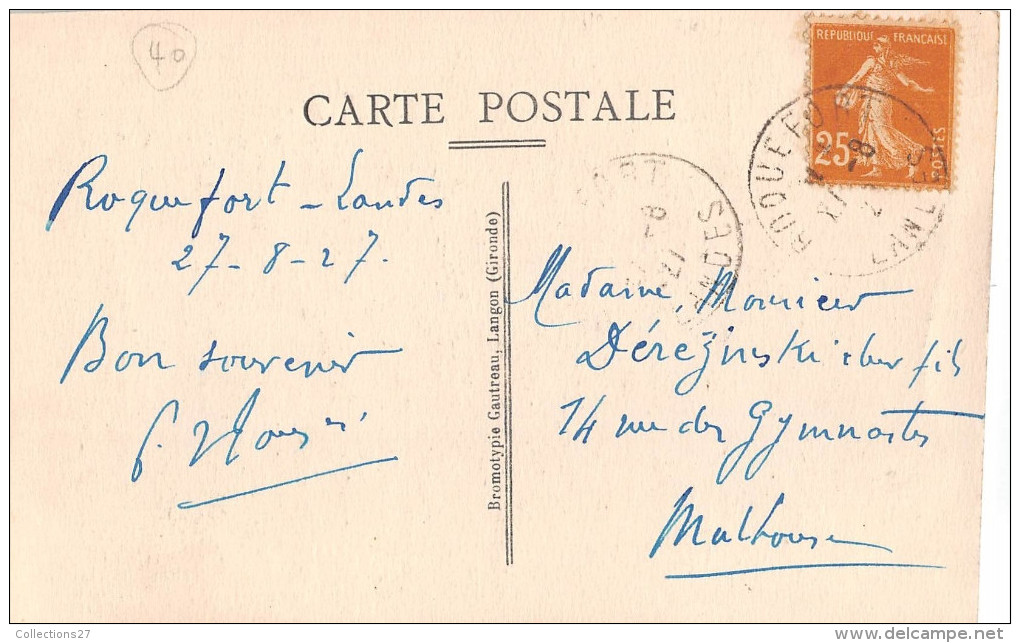 40
CARTE POSTALE
REPUBLIQUE FRANÇAISE
25
POSTES
ROQUEFORT
LANDES
Roquefort - Landes
27-8-27.
Bon souvenir
Bromotypie Gautreau, Langon (Gironde)
Madame, Monsieur
Dérežinski &
leur fils
14 rue des Gymnastes
Mulhouse
Collections27
delcampe.net